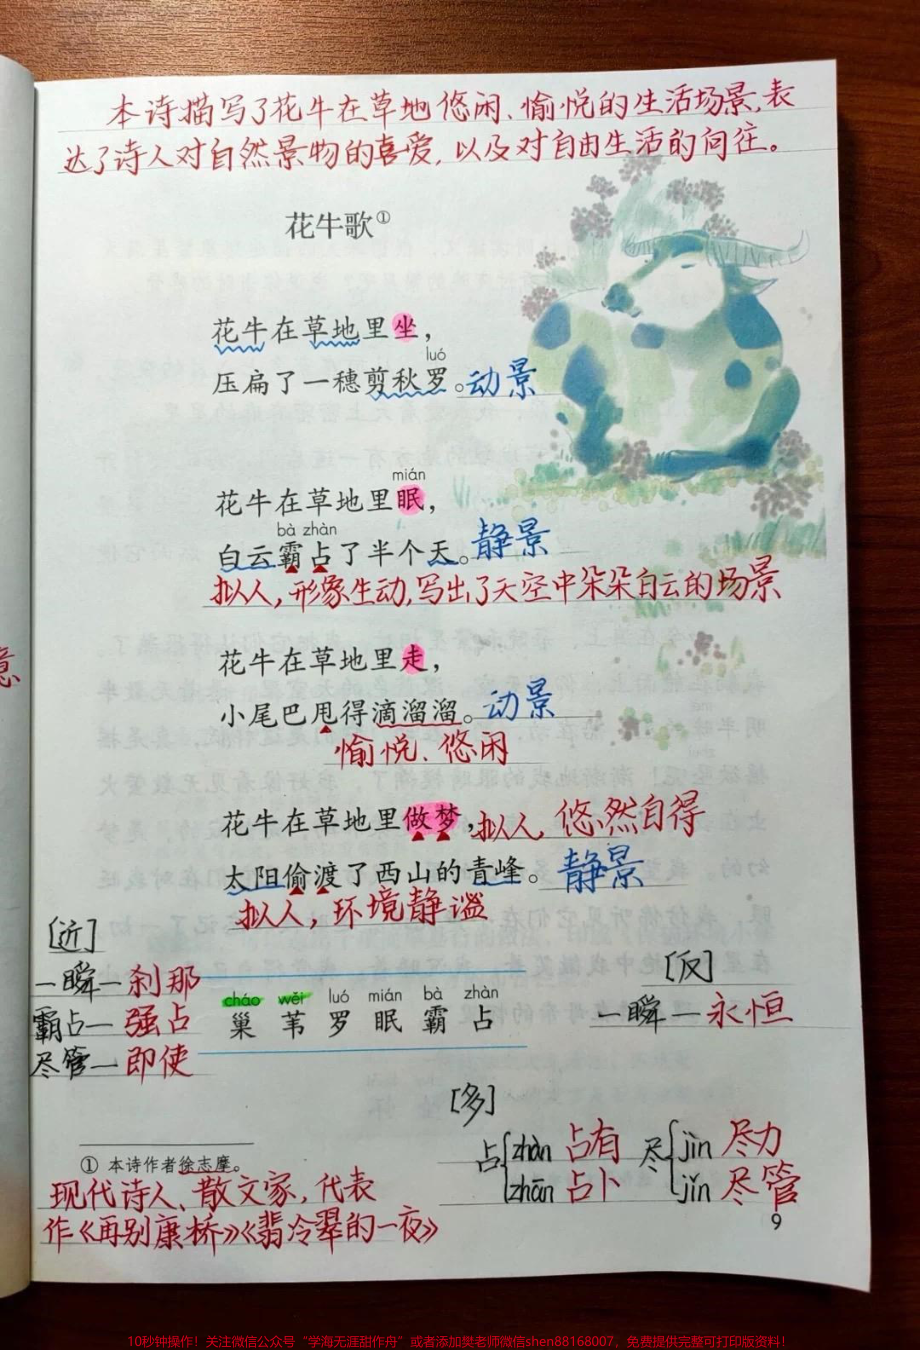 本诗描写了花牛在草地悠闲、愉悦的生活场景,表
达了诗人对自然景物的喜爱,以及对自由生活的向往。
花牛歌①
花牛在草地里坐,
luó
压扁了一穗剪秋罗。动景
mián
花牛在草地里眠,
bà zhàn
白云霸占了半个天。静景
拟人,形象生动,写出了天空中朵朵白云的场景
花牛在草地里走,
小尾巴甩得滴溜溜。动景
愉悦、悠闲
花牛在草地里做梦,拟人 悠然自得
太阳偷渡了西山的青峰。静景
拟人,环境静谧
[近]
一瞬—刹那
霸占—强占
尽管—即使
cháo wěi luó mián bà zhàn
巢 苇 罗 眠 霸 占
[反]
一瞬—永恒
[多]
占{zhàn 占有
zhān 占卜
尽{jìn 尽力
jǐn 尽管
① 本诗作者徐志摩。
现代诗人、散文家,代表
作《再别康桥》《翡冷翠的一夜》
9
10秒钟操作!关注微信公众号“学海无涯甜作舟”或者添加樊老师微信shen88168007,免费提供完整可打印版资料!